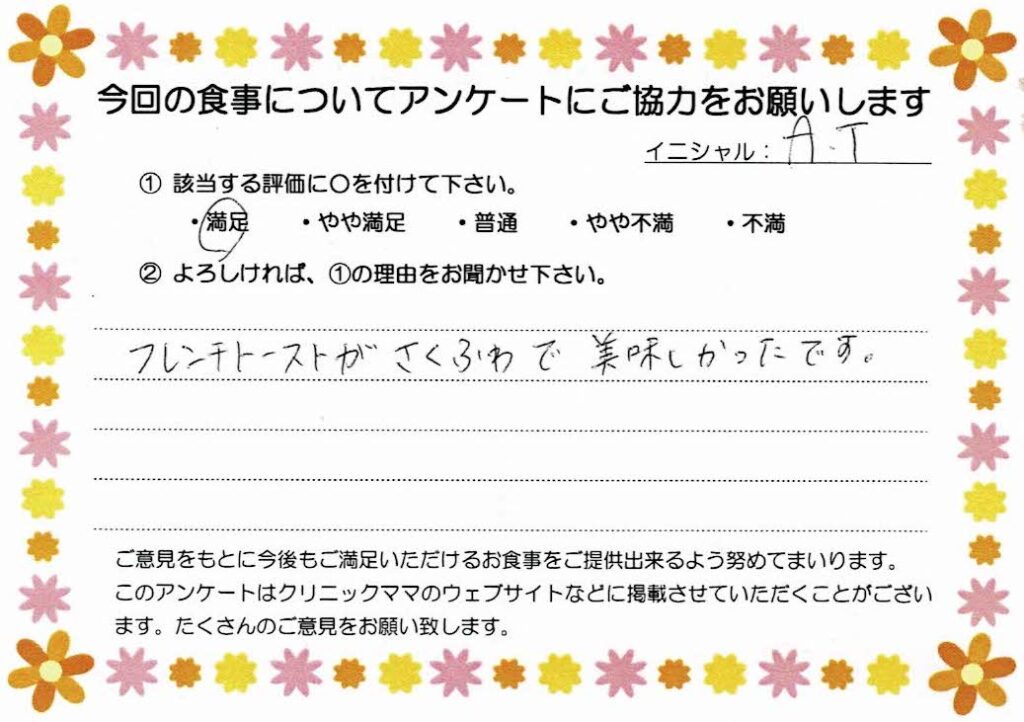 今回の食事についてアンケートにご協力をお願いします
イニシャル：A.T
① 該当する評価に〇を付けて下さい。
・満足 ・やや満足 ・普通 ・やや不満 ・不満
② よろしければ、①の理由をお聞かせ下さい。
フレンチトーストが さくふわで 美味しかったです。
ご意見をもとに今後もご満足いただけるお食事をご提供出来るよう努めてまいります。
このアンケートはクリニックママのウェブサイトなどに掲載させていただくことがござい
ます。たくさんのご意見をお願い致します。